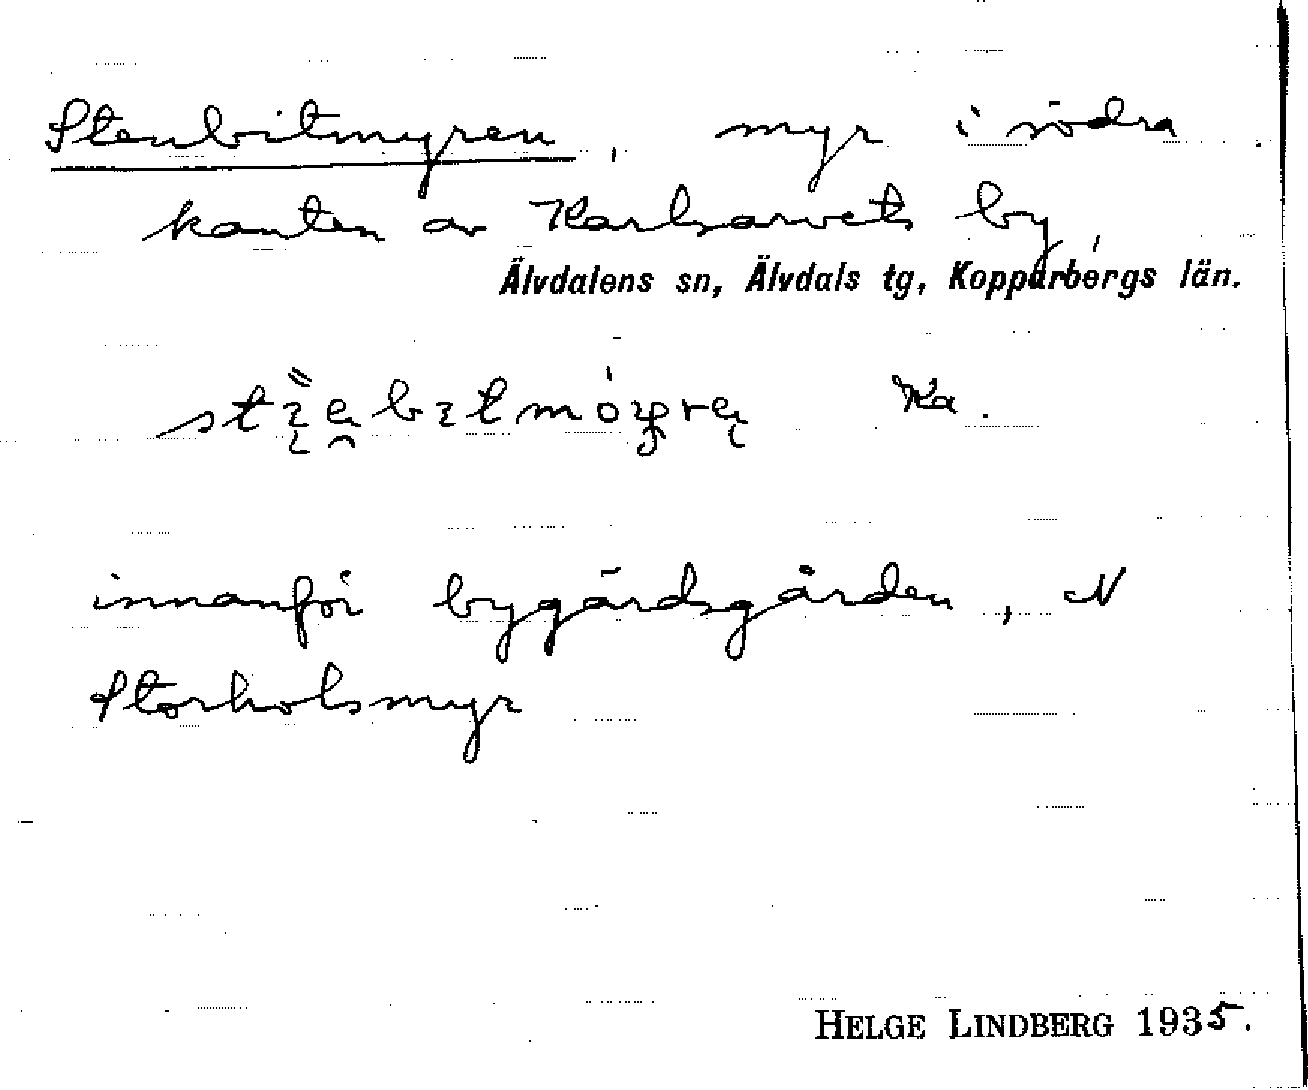 Stenbitmyren, myr i södra
kanten av Karlsarvets by,
Älvdalens sn, Älvdals tg, Kopparbergs län.
Ka.
innanför bygärdsgården, N
Storholsmyr
HELGE LINDBERG 1935.